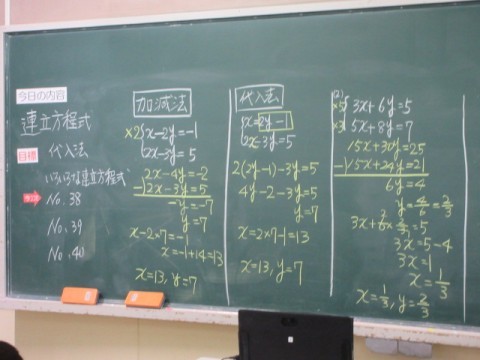 今日の内容
連立方程式
目標
代入法
いろいろな連立方程式
No. 38
No. 39
No. 40
加減法
×2 {x-2y=-1
{2x-3y=5
2x-4y=-2
-)2x-3y=5
-y=-7
y=7
x-2×7=-1
x=-1+14=13
x=13, y=7
代入法
{x=2y-1
{2x-3y=5
2(2y-1)-3y=5
4y-2-3y=5
y=7
x=2×7-1=13
x=13, y=7
(2)
×5 {3x+6y=5
×3 {5x+8y=7
15x+30y=25
-)15x+24y=21
6y=4
y=4/6=2/3
3x+6×2/3=5
3x=5-4
3x=1
x=1/3
x=1/3, y=2/3